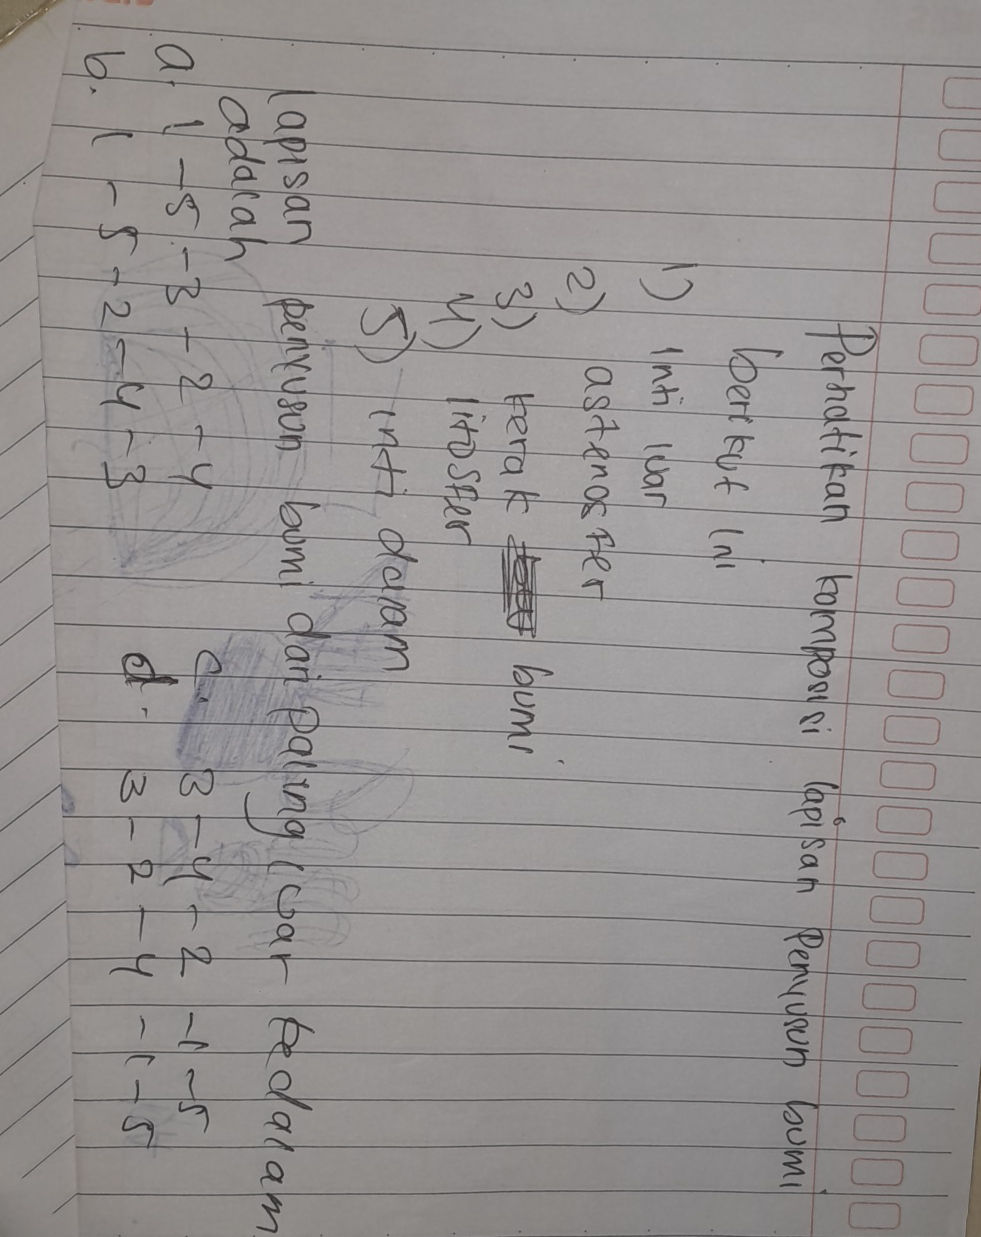 Perhatikan komposisi lapisan Penyusun bumi
berikut ini
1) inti luar
2) astenosfer
3) kerak bumi
4) litosfer
5) inti dalam
lapisan penyusun bumi dari paling luar kedalam
adalah
a. 1 - 5 - 3 - 2 - 4 c. 3 - 4 - 2 - 1 - 5
b. 1 - 5 - 2 - 4 - 3 d. 3 - 2 - 4 - 1 - 5